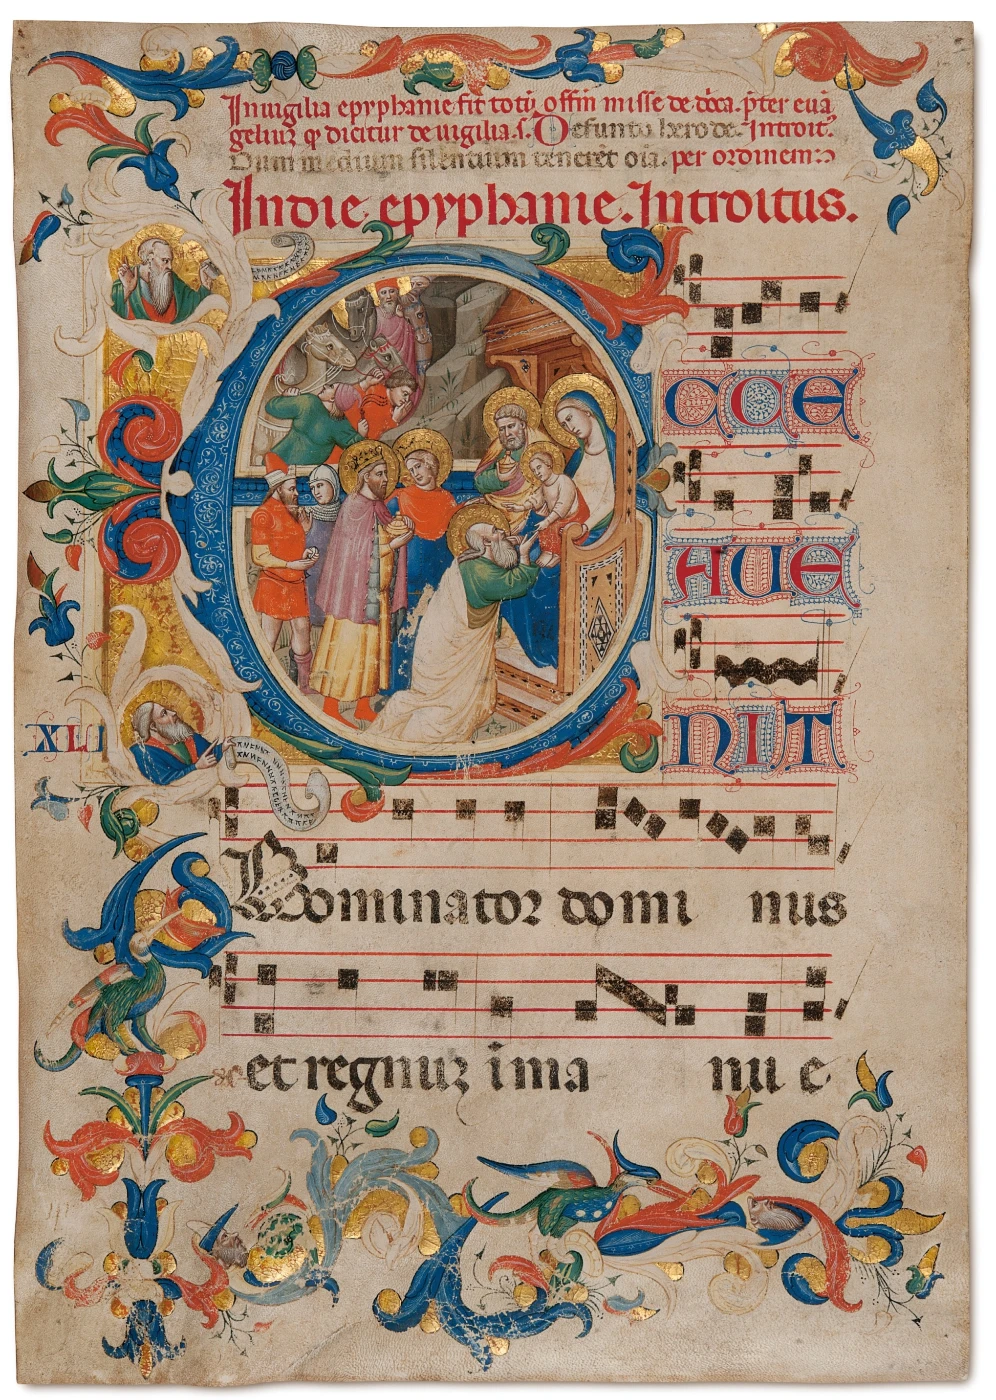 In uigilia epyphanie fit totū offm̄ misse de dōca. p̄ter euā
geliuʒ qd̓ dicitur de uigilia. s. Defuncto herode. Introit᷒.
Dum medium silentium teneret oīa. per ordinem:
In die epyphanie. Introitus.
ECCE
AUE
NIT
XLI
Dominator domi nus
et regnuʒ i ma nu e